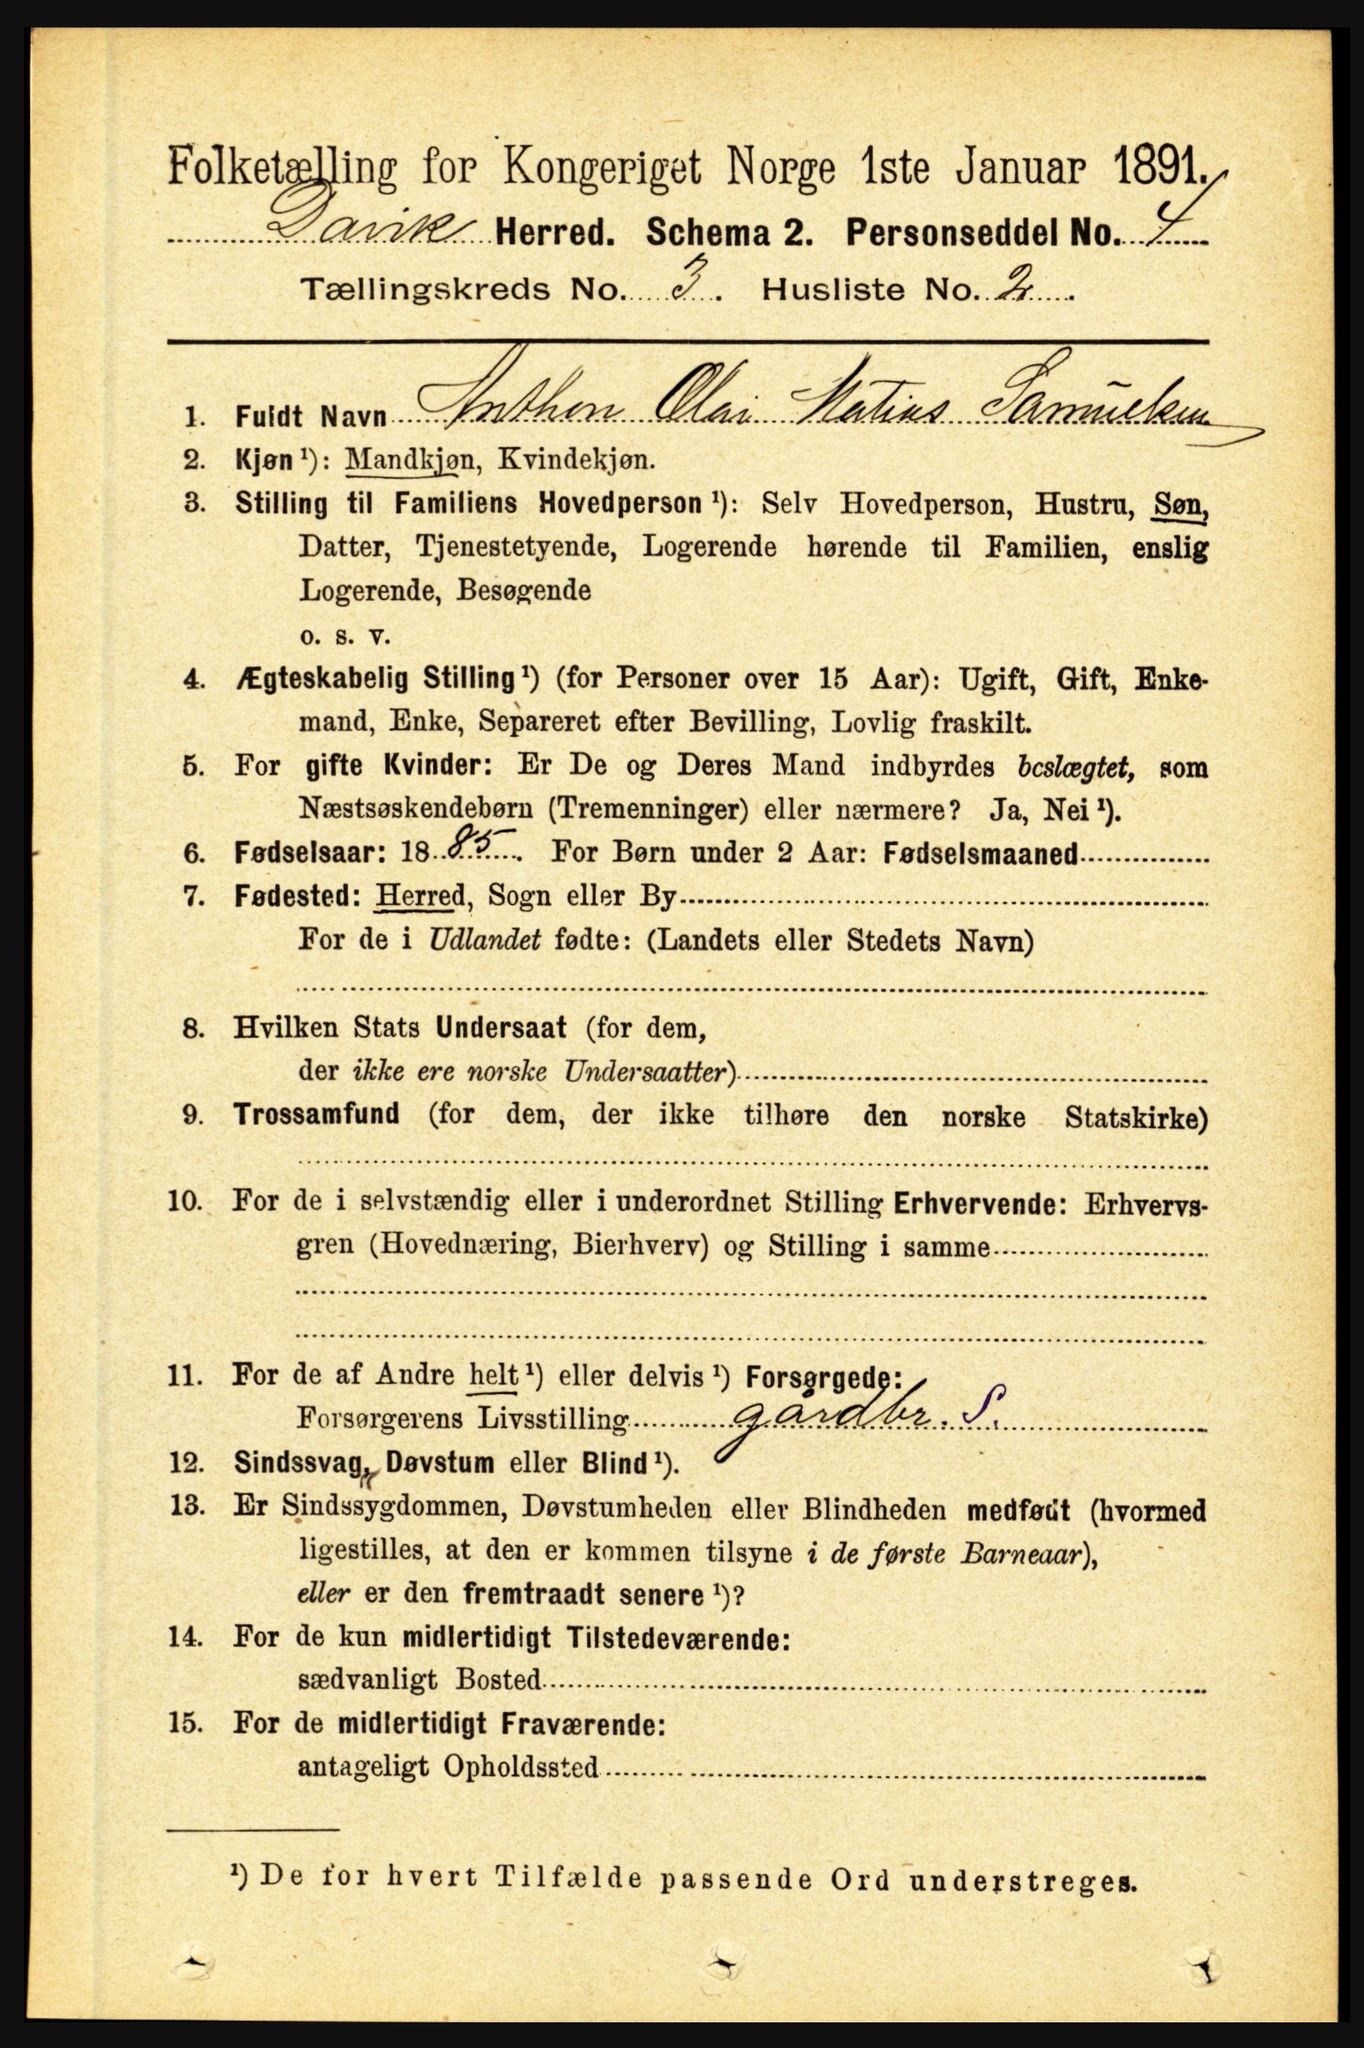 Folketælling for Kongeriget Norge 1ste Januar 1891.
Davik Herred. Schema 2. Personseddel No. 4
Tællingskreds No. 3. Husliste No. 2.
1. Fuldt Navn Anthon Olai Matias Samuelsen
2. Kjøn¹): Mandkjøn, Kvindekjøn.
3. Stilling til Familiens Hovedperson¹): Selv Hovedperson, Hustru, Søn,
Datter, Tjenestetyende, Logerende hørende til Familien, enslig
Logerende, Besøgende
o. s. v.
4. Ægteskabelig Stilling¹) (for Personer over 15 Aar): Ugift, Gift, Enke-
mand, Enke, Separeret efter Bevilling, Lovlig fraskilt.
5. For gifte Kvinder: Er De og Deres Mand indbyrdes beslægtet, som
Næstsøskendebørn (Tremenninger) eller nærmere? Ja, Nei¹).
6. Fødselsaar: 1885. For Børn under 2 Aar: Fødselsmaaned
7. Fødested: Herred, Sogn eller By
For de i Udlandet fødte: (Landets eller Stedets Navn)
8. Hvilken Stats Undersaat (for dem,
der ikke ere norske Undersaatter)
9. Trossamfund (for dem, der ikke tilhøre den norske Statskirke)
10. For de i selvstændig eller i underordnet Stilling Erhvervende: Erhvervs-
gren (Hovednæring, Bierhverv) og Stilling i samme
11. For de af Andre helt¹) eller delvis¹) Forsørgede:
Forsørgerens Livsstilling gårdbr. S.
12. Sindssvag, Døvstum eller Blind¹).
13. Er Sindssygdommen, Døvstumheden eller Blindheden medfødt (hvormed
ligestilles, at den er kommen tilsyne i de første Barneaar),
eller er den fremtraadt senere¹)?
14. For de kun midlertidigt Tilstedeværende:
sædvanligt Bosted
15. For de midlertidigt Fraværende:
antageligt Opholdssted
¹) De for hvert Tilfælde passende Ord understreges.